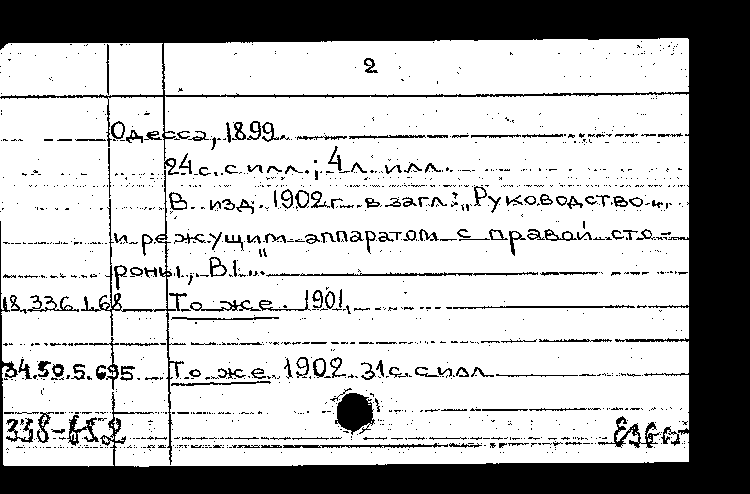 2
Одесса, 1899.
24 с. с илл.; 4 л. илл.
В изд. 1902 г. в загл.: „Руководство...
и режущим аппаратом с правой сто-
роны, В1..."
18.336.1.68 То же. 1901.
34.50.5.695 То же. 1902. 31 с. с илл.